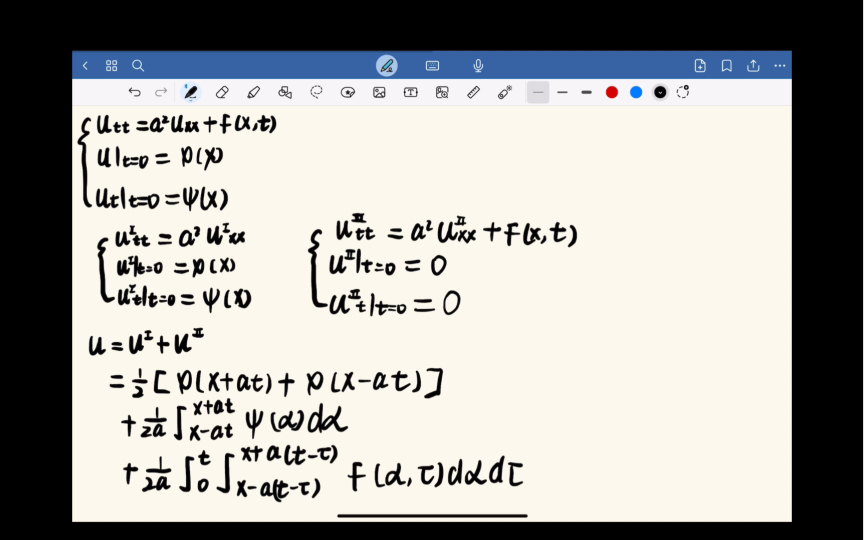 u_tt = a² u_xx + f(x,t)
u|t=0 = φ(x)
u_t|t=0 = ψ(x)
u^I_tt = a² u^I_xx
u^I|t=0 = φ(x)
u^I_t|t=0 = ψ(x)
u^II_tt = a² u^II_xx + f(x,t)
u^II|t=0 = 0
u^II_t|t=0 = 0
u = u^I + u^II
= 1/2 [φ(x+at) + φ(x-at)]
+ 1/2a ∫_{x-at}^{x+at} ψ(α)dα
+ 1/2a ∫_0^t ∫_{x-a(t-τ)}^{x+a(t-τ)} f(α,τ)dαdτ